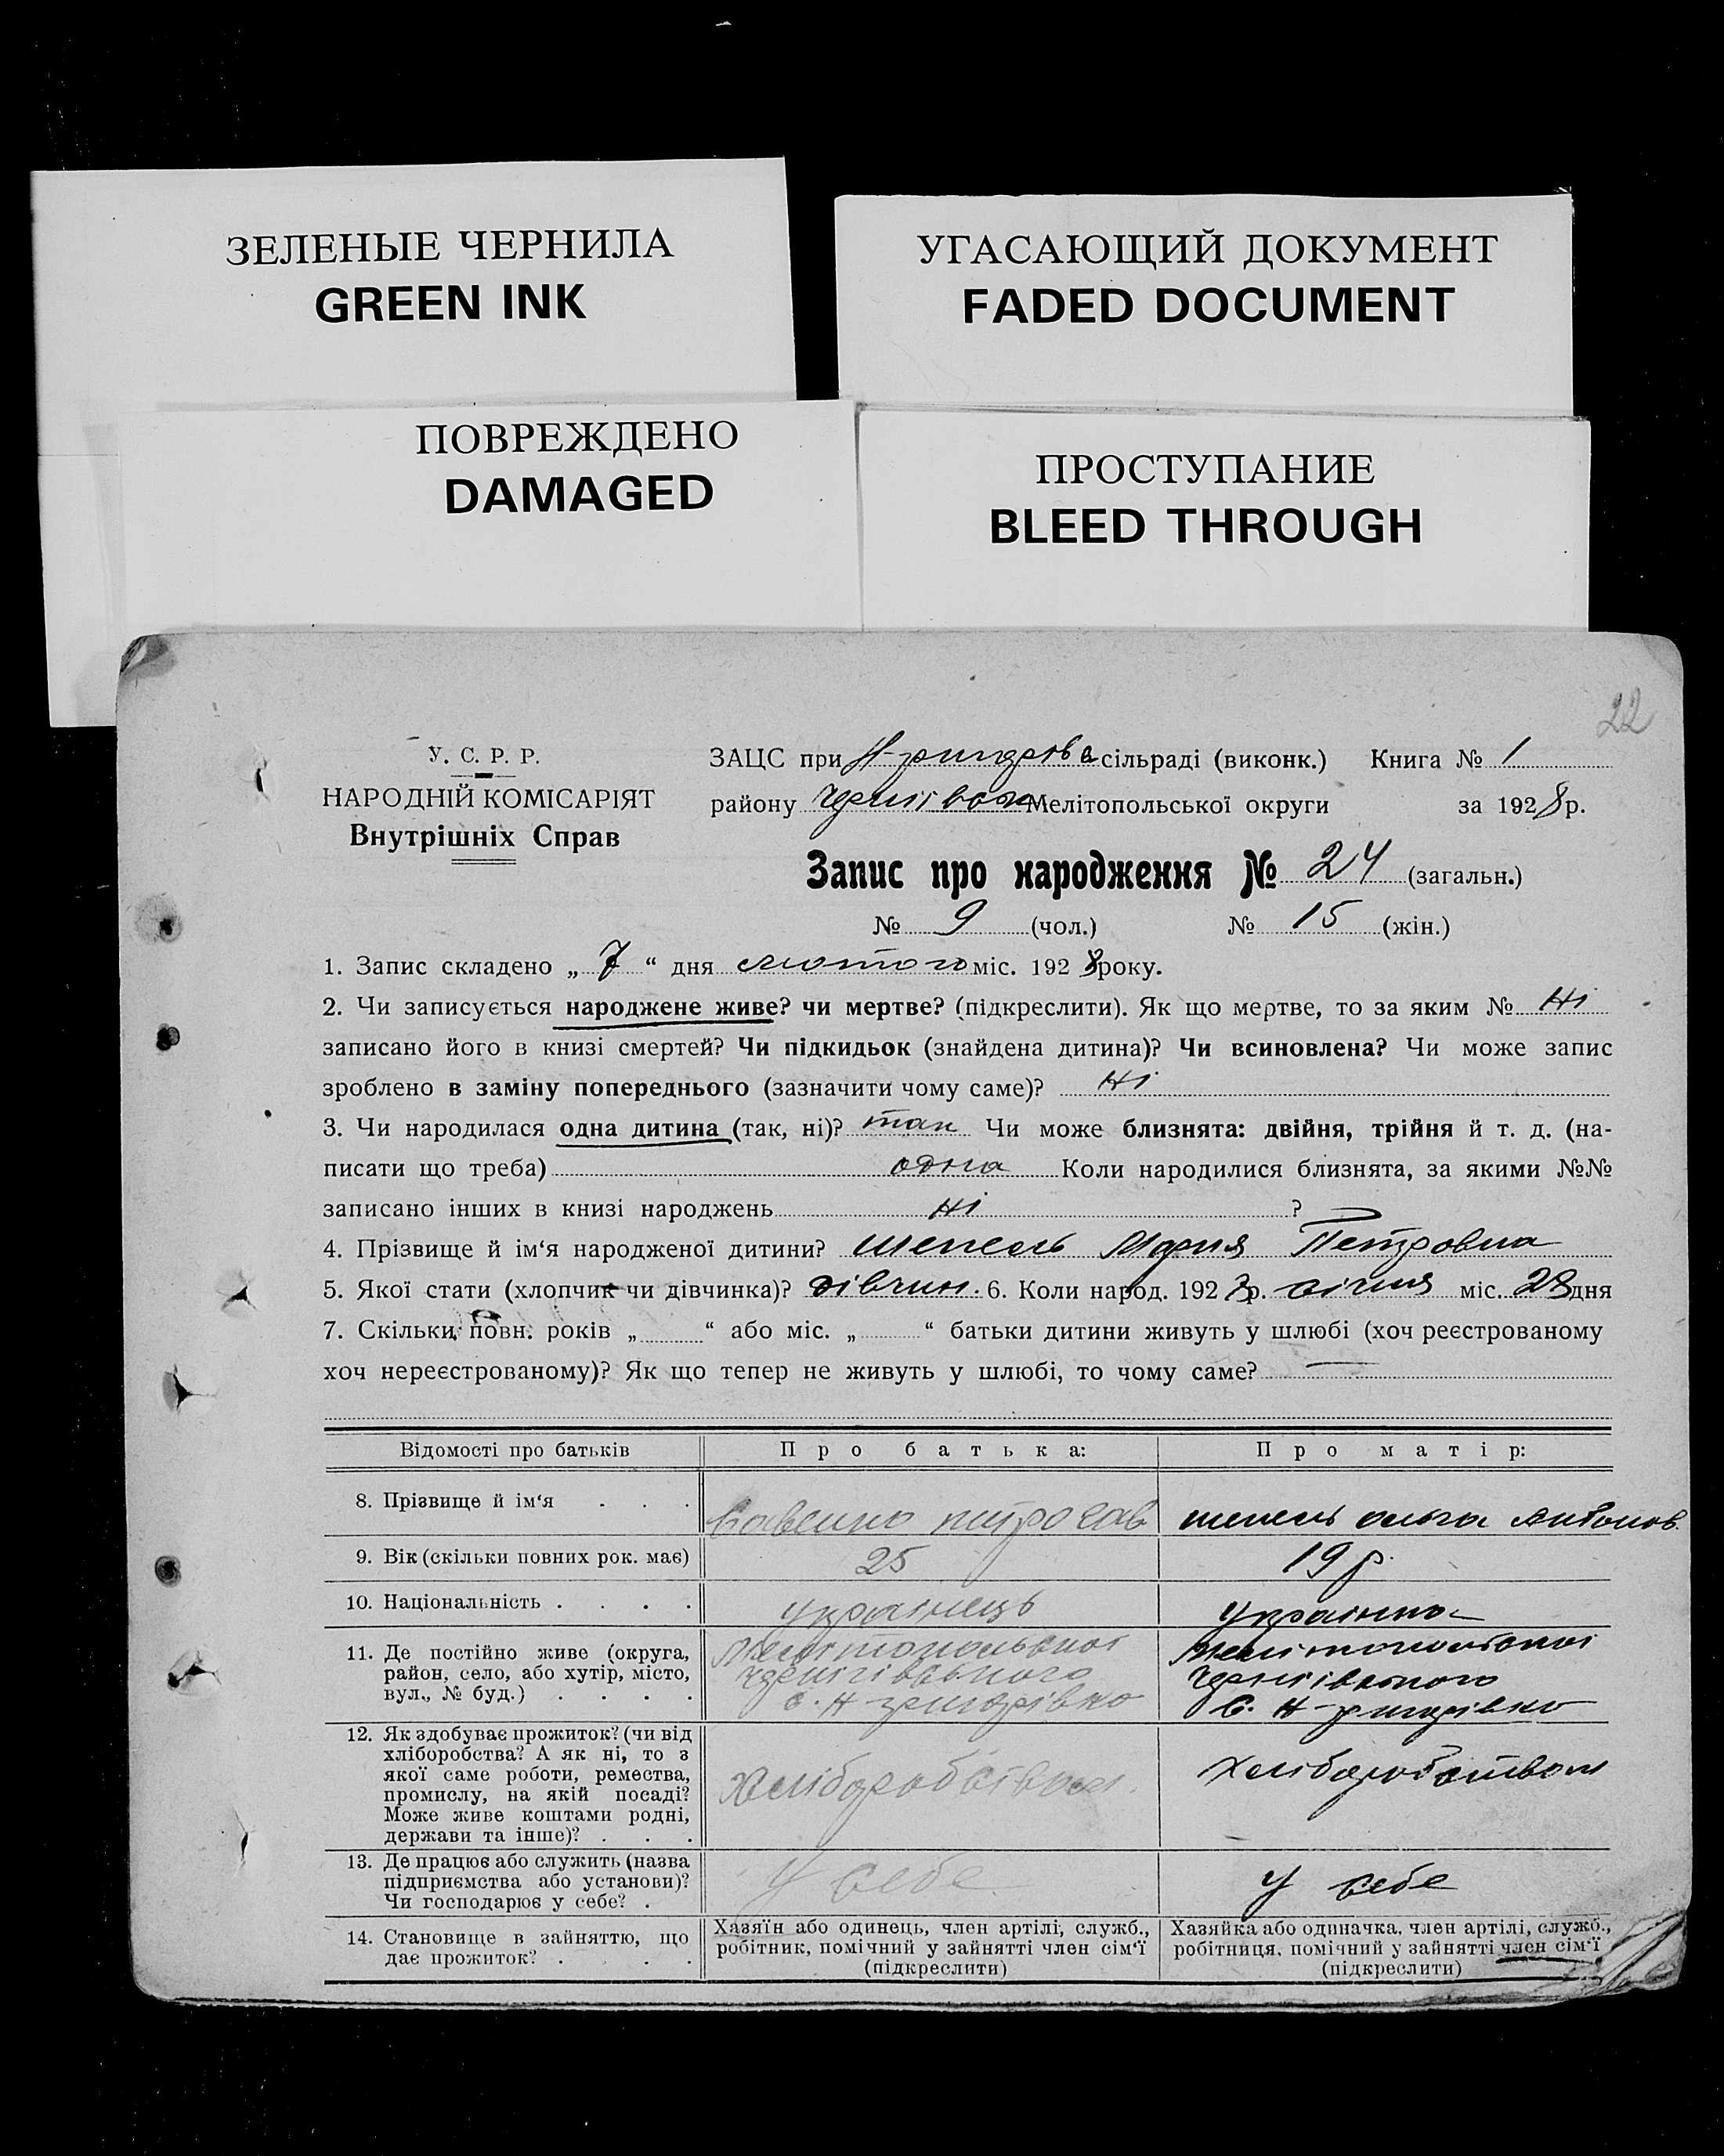 ЗЕЛЕНЫЕ ЧЕРНИЛА
GREEN INK
УГАСАЮЩИЙ ДОКУМЕНТ
FADED DOCUMENT
ПОВРЕЖДЕНО
DAMAGED
ПРОСТУПАНИЕ
BLEED THROUGH
22
У. С. Р. Р.
НАРОДНІЙ КОМІСАРІЯТ
Внутрішніх Справ
ЗАЦС при сільраді (виконк.) Книга № 1
району Мелітопольської округи за 1928 р.
Запис про народження № 24 (загальн.)
№ 9 (чол.) № 15 (жін.)
1. Запис складено „ 7 “ дня лютого міс. 1928 року.
2. Чи записується народжене живе? чи мертве? (підкреслити). Як що мертве, то за яким № Ні
записано його в книзі смертей? Чи підкидьок (знайдена дитина)? Чи всиновлена? Чи може запис
зроблено в заміну попереднього (зазначити чому саме)? Ні
3. Чи народилася одна дитина (так, ні)? так Чи може близнята: двійня, трійня й т. д. (на-
писати що треба) одна Коли народилися близнята, за якими №№
записано інших в книзі народжень Ні ?
4. Прізвище й ім‘я народженої дитини? Шепель Мария Петровна
5. Якої стати (хлопчик чи дівчинка)? дівчин. 6. Коли народ. 192 р. січня міс. 28 дня
7. Скільки повн. років „ “ або міс. „ “ батьки дитини живуть у шлюбі (хоч реєстрованому
хоч нереєстрованому)? Як що тепер не живуть у шлюбі, то чому саме? —
Відомості про батьків Про батька: Про матір:
8. Прізвище й ім‘я . . . Савенко петро сав шепель ольга Антонов.
9. Вік (скільки повних рок. має) 25 19 р.
10. Національність . . . . Українець Українка
11. Де постійно живе (округа, район, село, або хутір, місто, вул., № буд.) . . . . Мелітопольської
Чернігівського
с. Н-григорівка
Мелітопольської
Чернігівського
с. Н-григорівка
12. Як здобуває прожиток? (чи від хліборобства? А як ні, то з якої саме роботи, ремества, промислу, на якій посаді? Може живе коштами родні, держави та інше)? . . . Хліборобством. Хліборобством
13. Де працює або служить (назва підприємства або установи)? Чи господарює у себе? . У себе У себе
14. Становище в зайняттю, що дає прожиток? . . . .
Хазяїн або одинець, член артілі, служб.,
робітник, помічний у зайнятті член сім‘ї
(підкреслити)
Хазяйка або одиначка, член артілі, служб.,
робітниця, помічний у зайнятті член сім‘ї
(підкреслити)